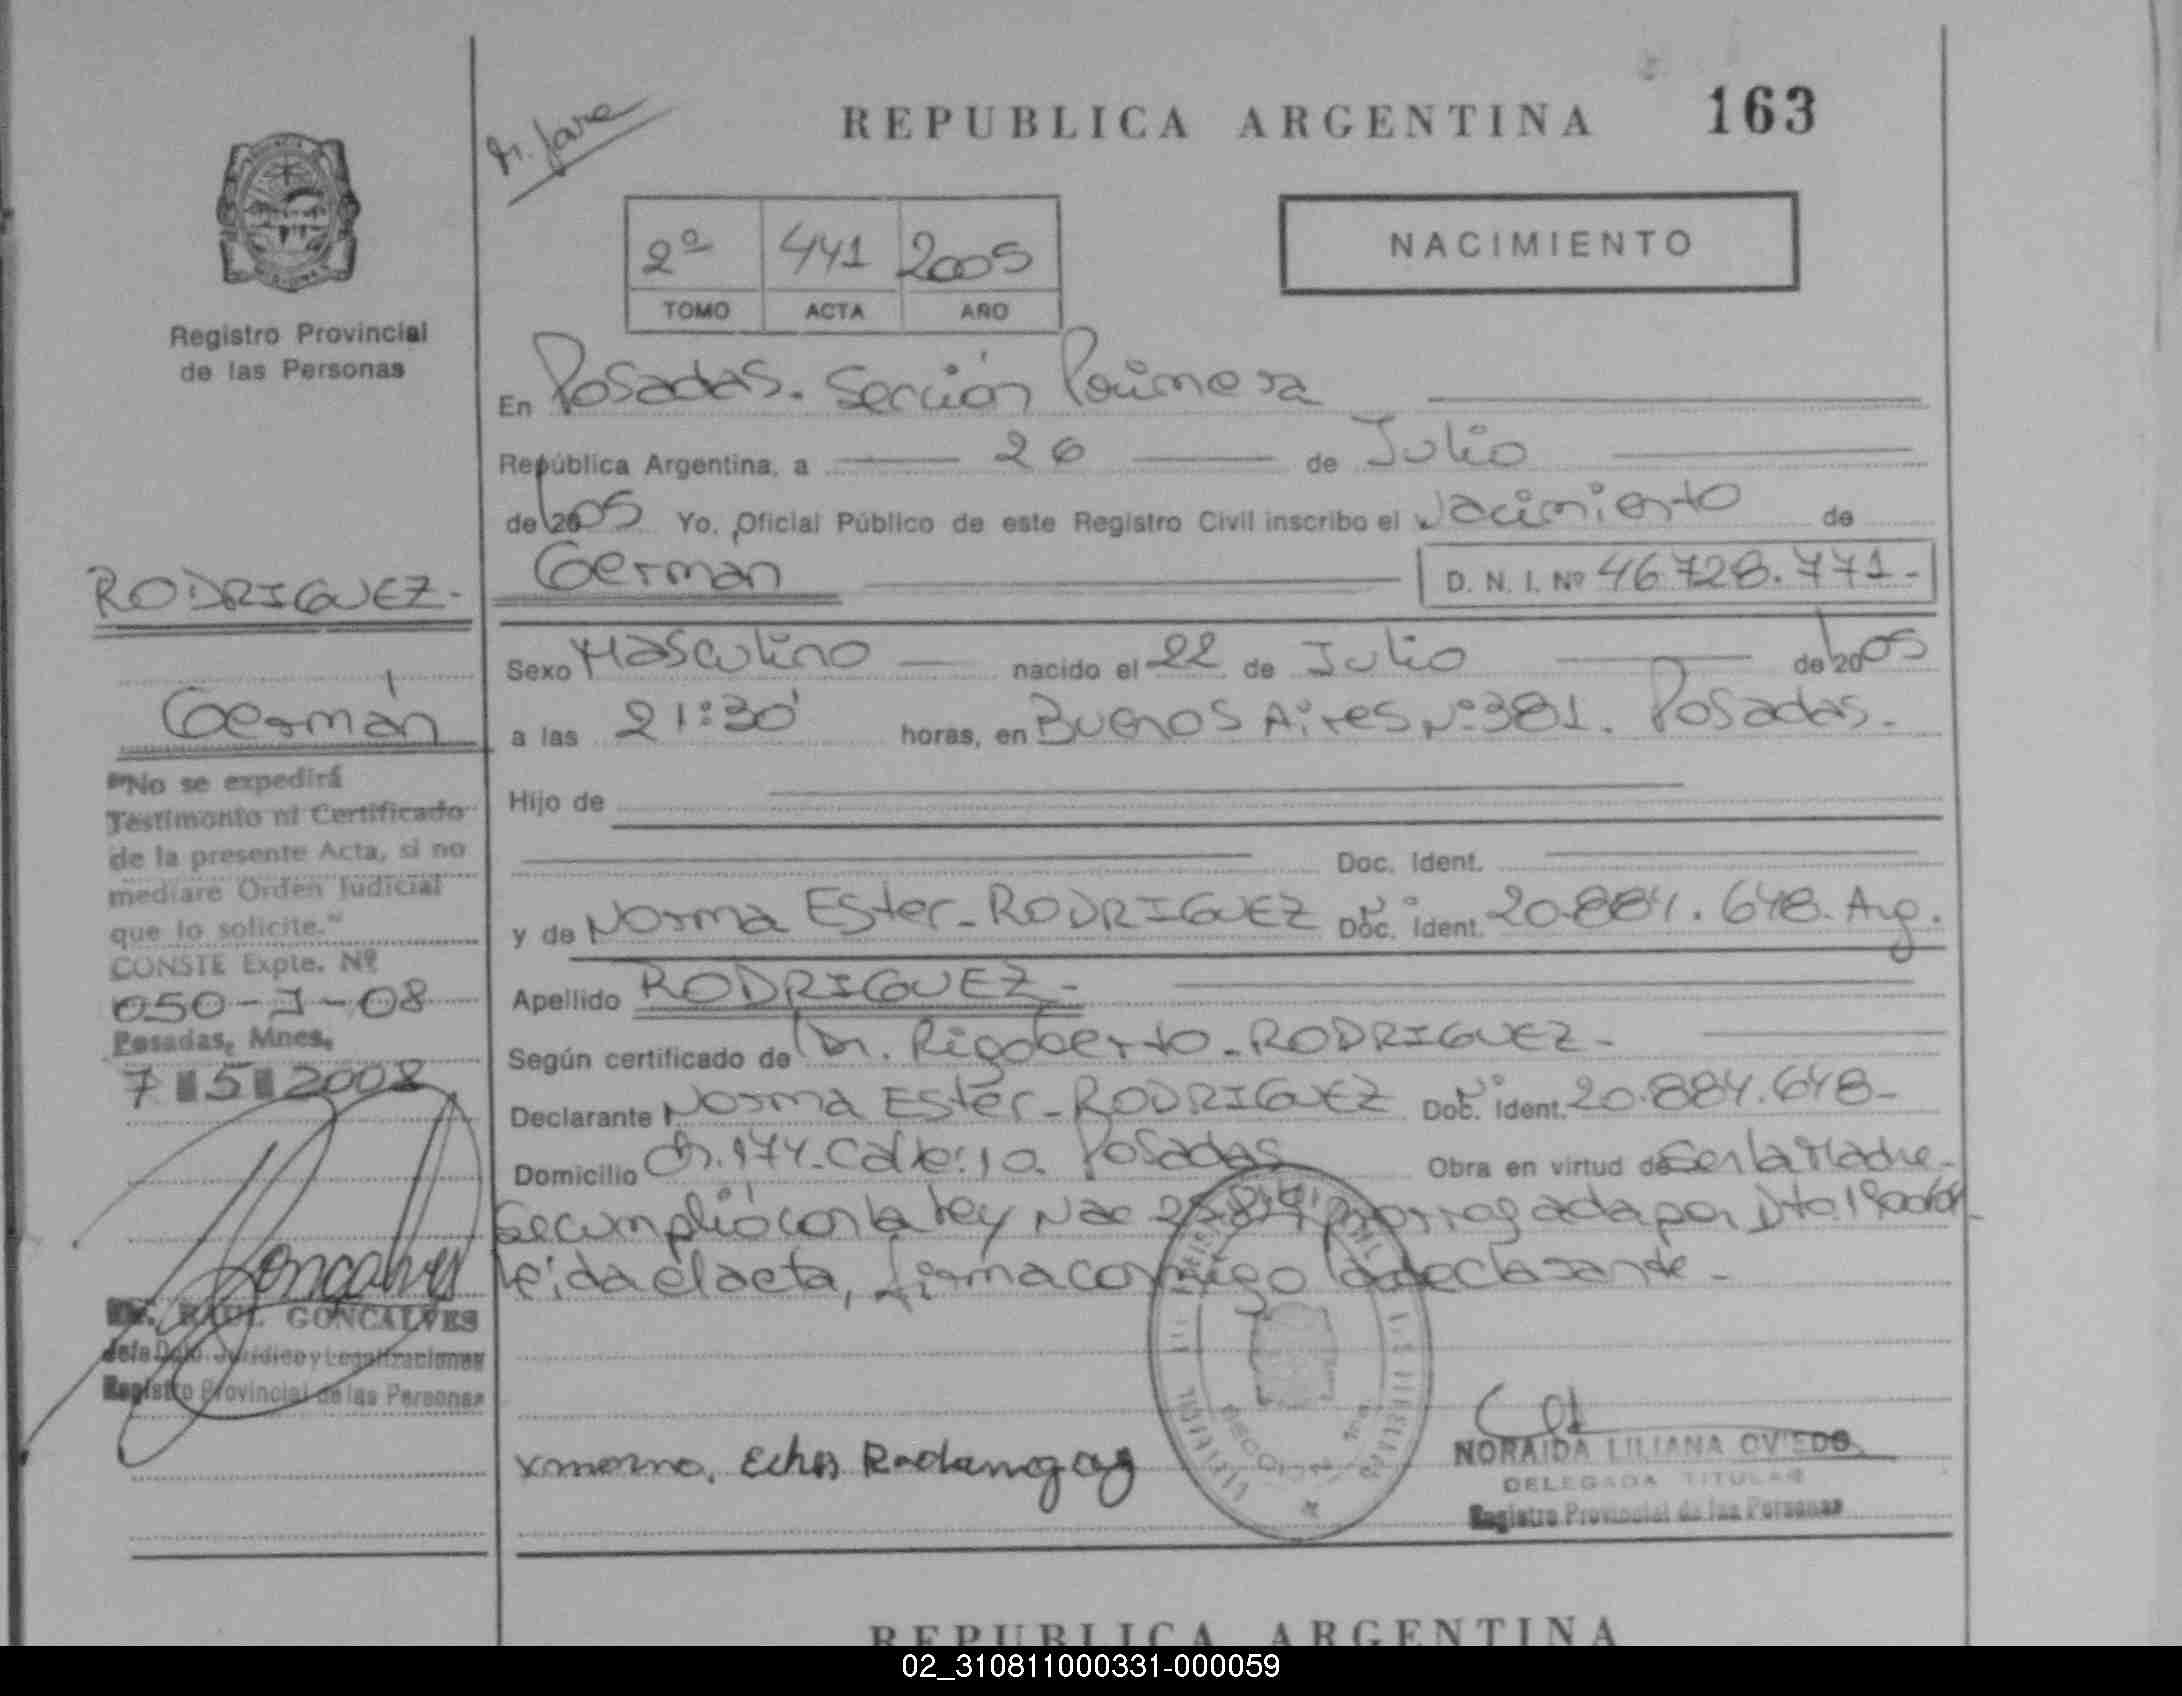 REPUBLICA ARGENTINA 163
2º 441 2005
TOMO ACTA AÑO
NACIMIENTO
Registro Provincial
de las Personas
En Posadas. Sección Primera
República Argentina, a 26 de Julio
de 2005 Yo, Oficial Público de este Registro Civil inscribo el Nacimiento de
German D. N. I. Nº 46728.771.-
Sexo Masculino nacido el 22 de Julio de 2005
a las 21:30 horas, en Buenos Aires Nº 381. Posadas.
Hijo de
Doc. Ident.
y de Norma Ester - RODRIGUEZ Doc. Ident. 20.884.648. Arg.
Apellido RODRIGUEZ -
Según certificado de Dr. Rigoberto - RODRIGUEZ -
Declarante Norma Ester - RODRIGUEZ Doc. Ident. 20.884.648 -
Domicilio Ch. 174. Calle: 10. Posadas Obra en virtud de ser la Madre -
Se cumplió con la Ley Nac prorrogada por Dto.
leida el acta, firma conmigo la declarante -
NORAIDA LILIANA OVIEDO
DELEGADA TITULAR
Registro Provincial de las Personas
RODRIGUEZ -
Germán
"No se expedirá
Testimonio ni Certificado
de la presente Acta, si no
mediare Orden Judicial
que lo solicite."
CONSTE Expte. Nº
050-J-08
Posadas, Mnes,
7 5 2008
RAUL GONCALVES
Jefe Dpto. Jurídico y Legalizaciones
Registro Provincial de las Personas
REPUBLICA ARGENTINA
02_310811000331-000059